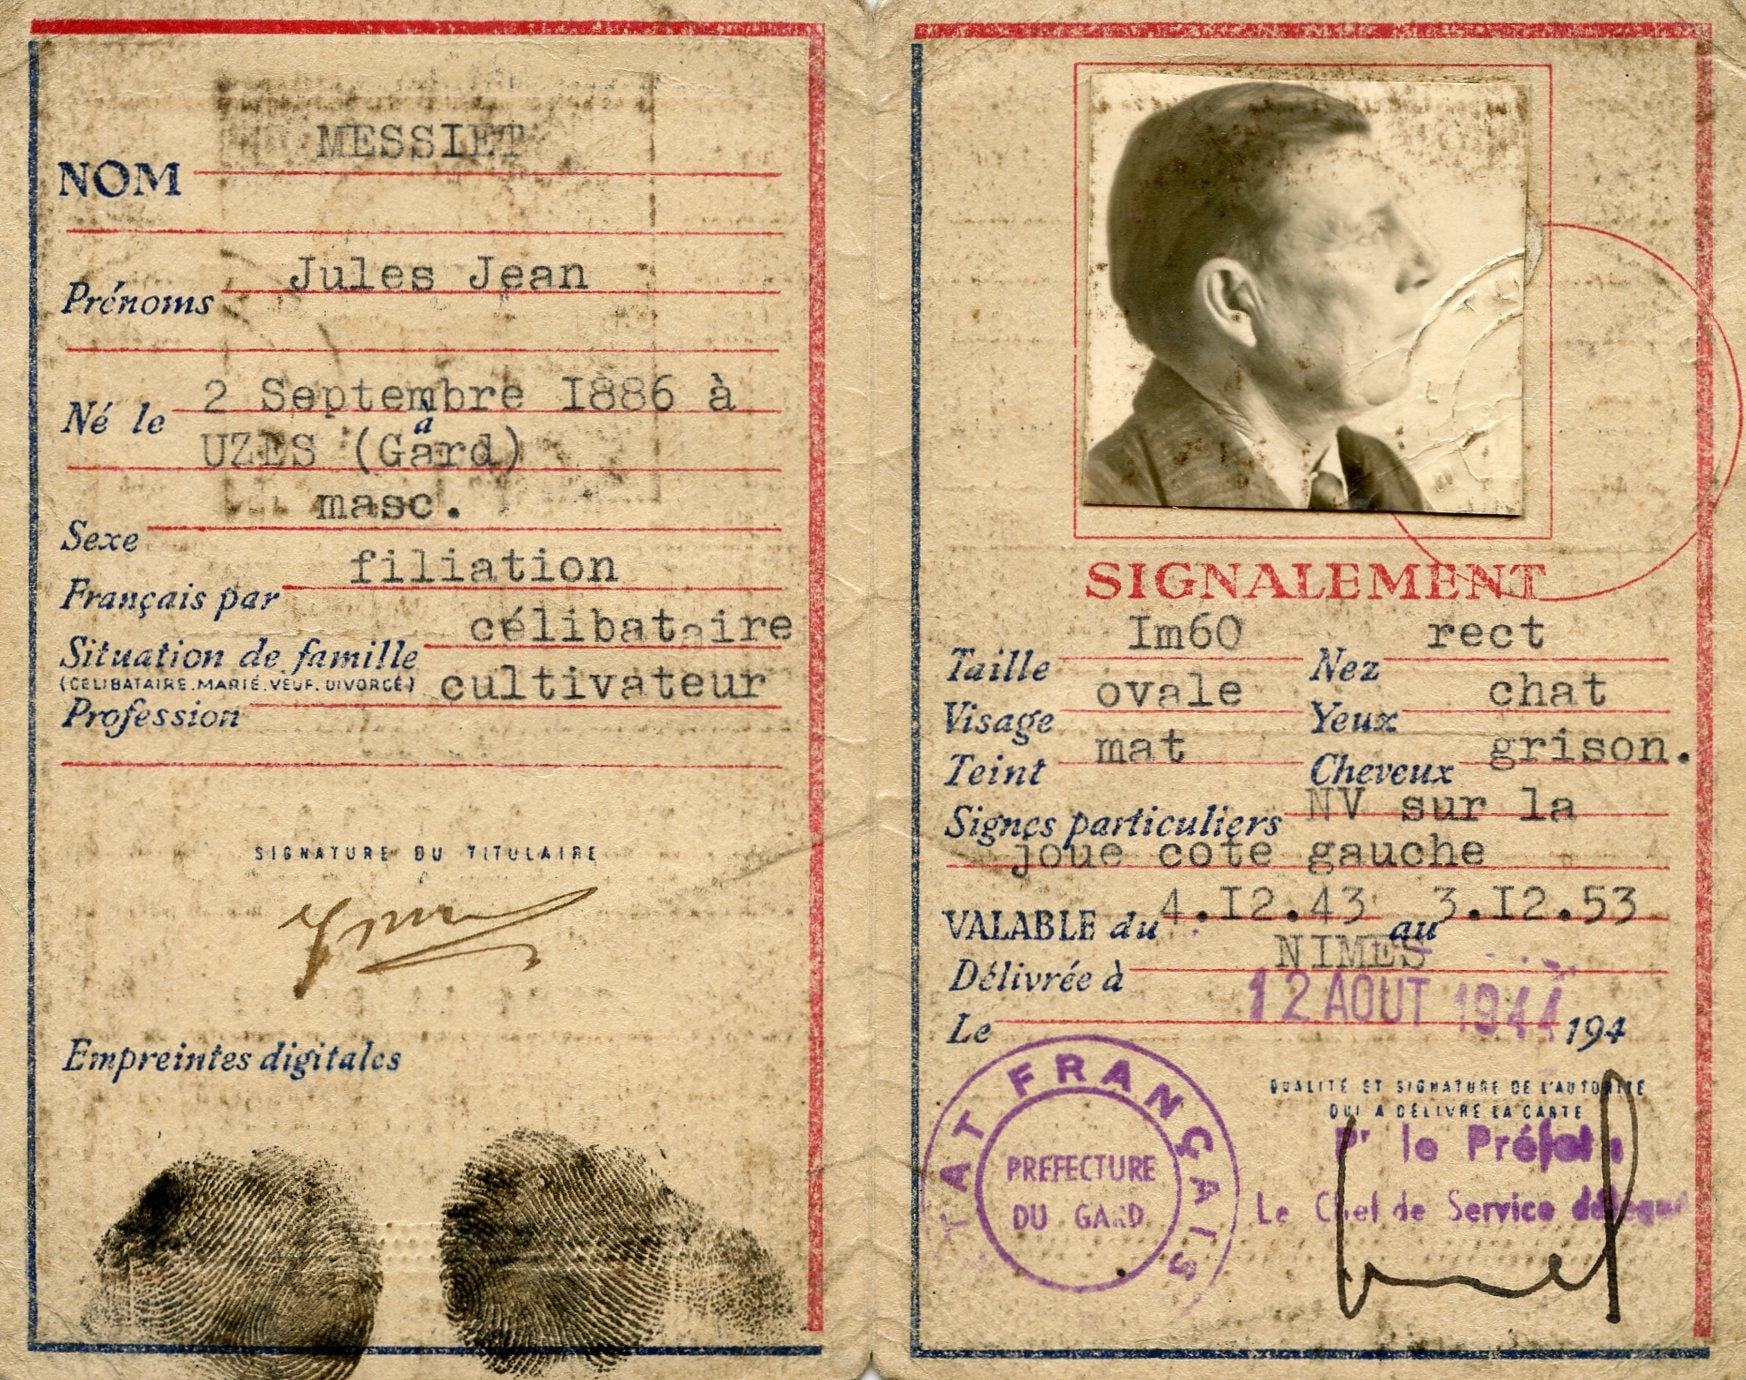 MESSIET
NOM
Jules Jean
Prénoms
2 Septembre I886 à
Né le
à
UZES (Gard)
masc.
Sexe
filiation
Français par
célibataire
Situation de famille
(CÉLIBATAIRE.MARIÉ.VEUF.DIVORCÉ)
cultivateur
Profession
SIGNATURE DU TITULAIRE
Empreintes digitales
SIGNALEMENT
Im60 rect
Taille Nez
ovale chat
Visage Yeux
mat grison.
Teint Cheveux
NV sur la
Signes particuliers
joue cote gauche
4.I2.43 3.I2.53
VALABLE du au
NIMES
Délivrée à
12 AOUT 1944
Le 194
QUALITÉ ET SIGNATURE DE L'AUTORITÉ
QUI A DÉLIVRÉ LA CARTE
Pr le Préfet
Le Chef de Service délégué
ETAT FRANÇAIS
PREFECTURE
DU GARD